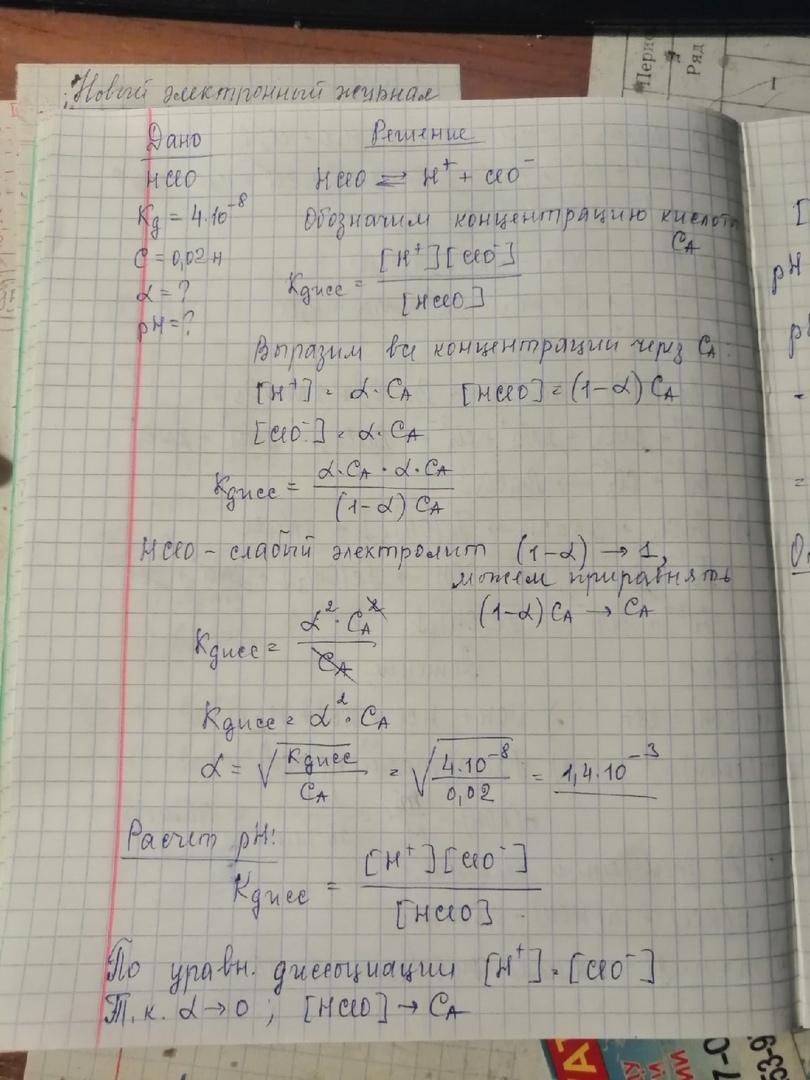 Новый электронный журнал
Дано
Решение
HClO
HClO ⇄ H⁺ + ClO⁻
Kд = 4·10⁻⁸
Обозначим концентрацию кислоты
C_A
C = 0,02н
α = ?
pH = ?
Kдисс = [H⁺][ClO⁻] / [HClO]
Выразим все концентрации через C_A:
[H⁺] = α·C_A [HClO] = (1-α) C_A
[ClO⁻] = α·C_A
Kдисс = α·C_A · α·C_A / (1-α) C_A
HClO - слабый электролит (1-α) → 1,
можем приравнять
(1-α) C_A → C_A
Kдисс = α²·C_A² / C_A
Kдисс = α²·C_A
α = √(Kдисс / C_A) = √(4·10⁻⁸ / 0,02) = 1,4·10⁻³
Расчет pH:
Kдисс = [H⁺][ClO⁻] / [HClO]
По уравн. диссоциации [H⁺] = [ClO⁻]
Т.к. α → 0 ; [HClO] → C_A
Ряд
I
[
pH
=